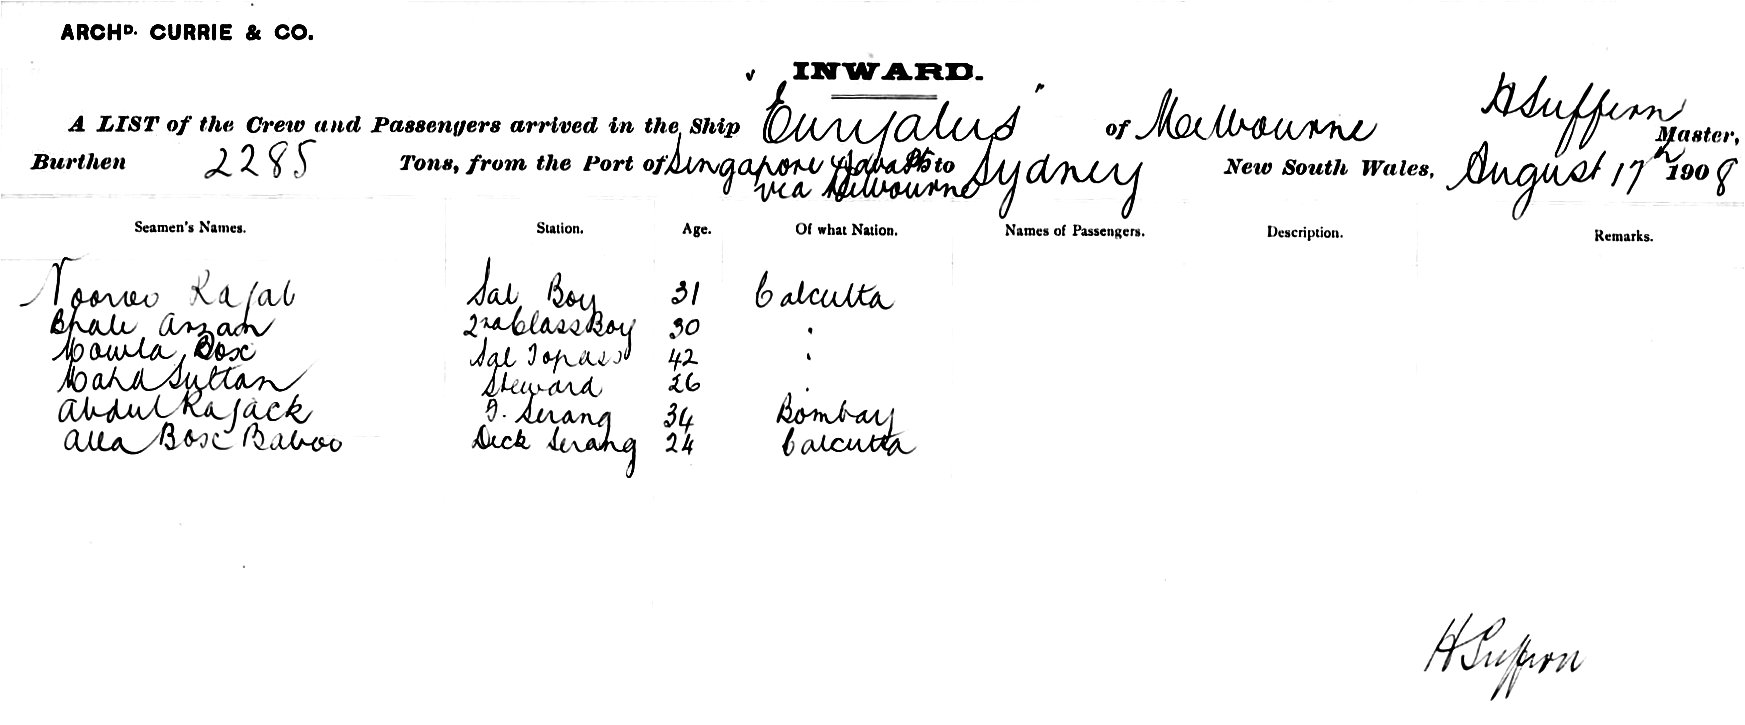 ARCHD. CURRIE & CO.
INWARD.
A LIST of the Crew and Passengers arrived in the Ship "Euryalus" of Melbourne H Suffern Master,
Burthen 2285 Tons, from the Port of Singapore & Java Pts via Melbourne to Sydney New South Wales, August 17th 1908
Seamen's Names. Station. Age. Of what Nation. Names of Passengers. Description. Remarks.
Rajab Sal Boy 31 Calcutta
Anzam 2nd Class Boy 30 "
Mowla Box Sal Topass 42 "
Sultan Steward 26 "
Abdul Rajack Serang 34 Bombay
Alla Box Baboo Deck Serang 24 Calcutta
H Suffern